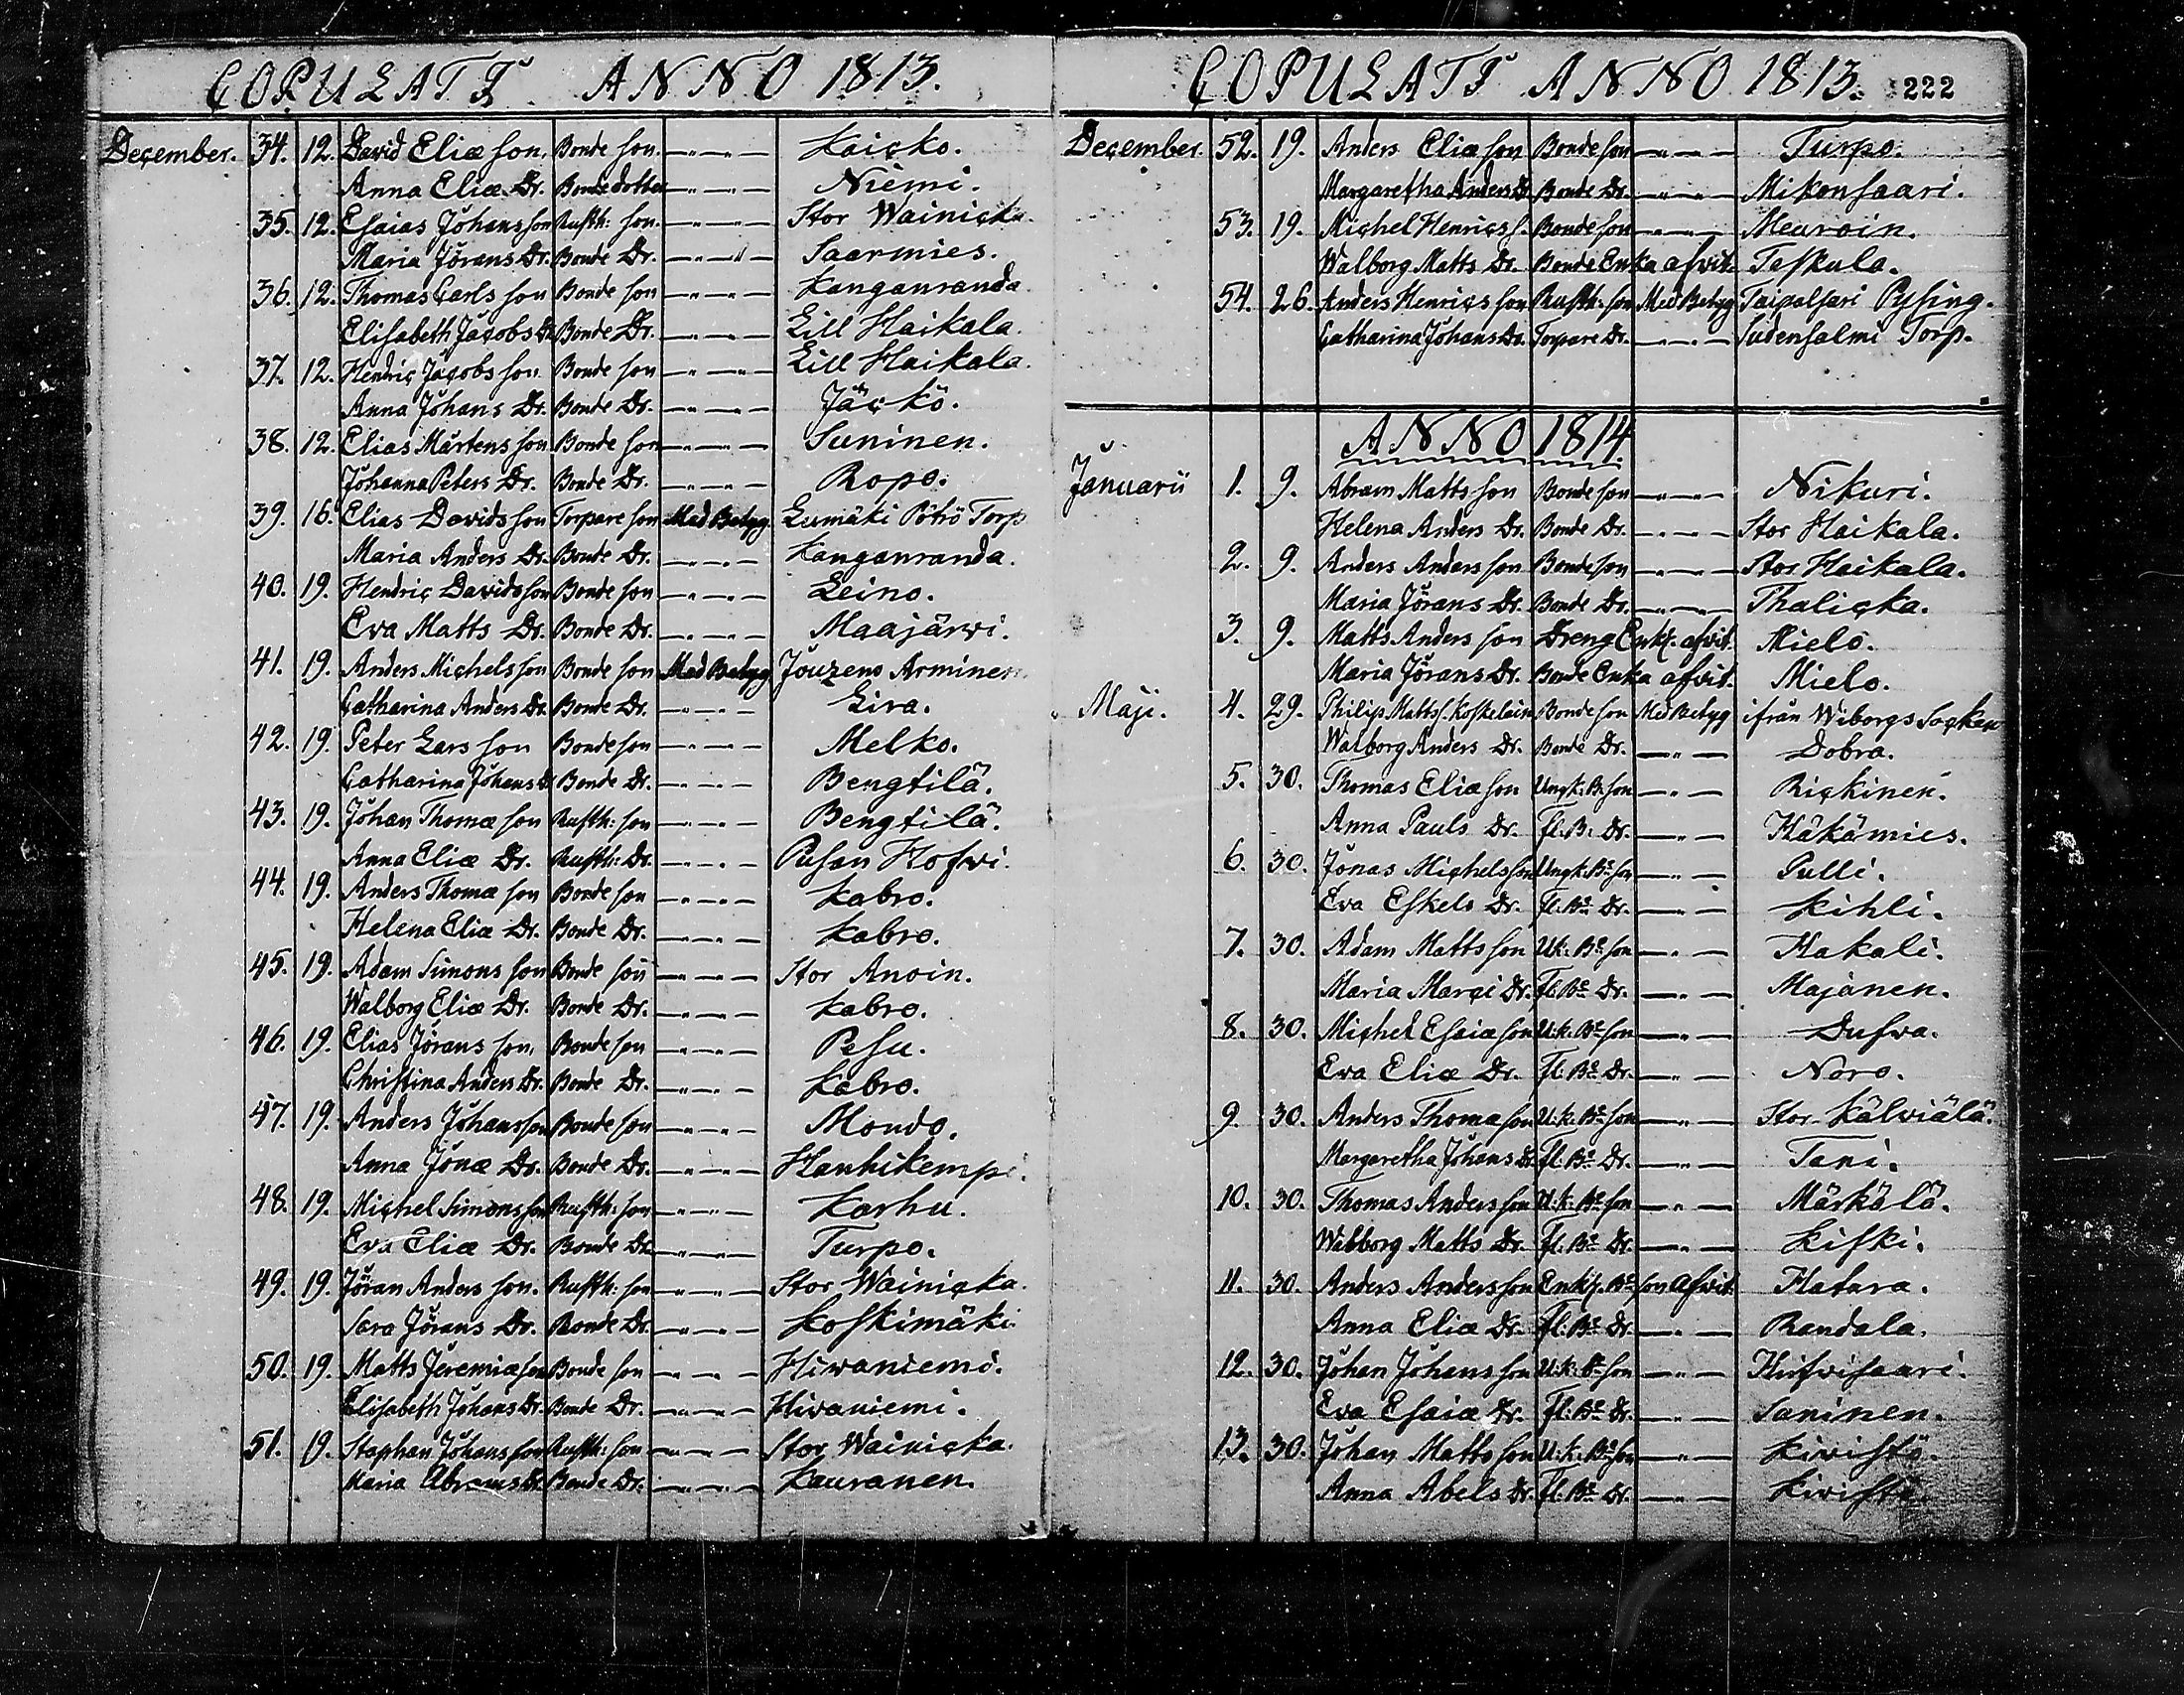 COPULATI ANNO 1813.
December. 34. 12. David Eliæ son. Bonde son. —„—„— Kaicko.
Anna Eliæ Dr. Bonde dotter —„—„— Niemi.
35. 12. Esaias Johans son Rusth: son. —„—„— Stor Wainicka.
Maria Jörans Dr. Bonde Dr. —„—„— Saarmies.
36. 12. Thomas Carls son Bonde son —„—„— Kanganranda
Elisabeth Jacobs Dr Bonde Dr. —„—„— Lill Haikala.
37. 12. Hendric Jacobs son. Bonde son —„—„— Lill Haikala.
Anna Johans Dr. Bonde Dr. —„—„— Jäckö.
38. 12. Elias Mårtens son Bonde son —„—„— Suninen.
Johanna Peters Dr. Bonde Dr. —„—„— Ropo.
39. 16. Elias Davids son Torpare son Med Betyg. Lumäki Pötrö Torp
Maria Anders Dr. Bonde Dr. —„—„— Kanganranda.
40. 19. Hendric Davids son Bonde son —„—„— Leino.
Eva Matts Dr. Bonde Dr. —„—„— Maajärwi.
41. 19. Anders Michels son Bonde son Med Betyg Jouzeno Arminen.
Catharina Anders Dr. Bonde Dr. —„—„— Lira.
42. 19. Peter Lars son Bonde son —„—„— Melko.
Catharina Johans Dr Bonde Dr. —„—„— Bengtilä.
43. 19. Johan Thomæ son Rusth: son —„—„— Bengtilä.
Anna Eliæ Dr. Rusth: Dr. —„—„— Pusan Hofwi.
44. 19. Anders Thomæ son Bonde son —„—„— Kabro.
Helena Eliæ Dr. Bonde Dr. —„—„— Kabro.
45. 19. Adam Simons son Bonde son —„—„— Stor Anoin.
Walborg Eliæ Dr. Bonde Dr. —„—„— Kabro.
46. 19. Elias Jörans son. Bonde son —„—„— Pesu.
Christina Anders Dr. Bonde Dr. —„—„— Kabro.
47. 19. Anders Johans son Bonde son —„—„— Mondo.
Anna Jonæ Dr. Bonde Dr. —„—„— Hanhikempi.
48. 19. Michel Simons son Rusth: son —„—„— Karhu.
Eva Eliæ Dr. Bonde Dr. —„—„— Turpo.
49. 19. Jöran Anders son. Rusth: son —„—„— Stor Wainicka.
Sara Jörans Dr. Bonde Dr. —„—„— Koskimäki
50. 19. Matts Jeremiæ son Bonde son —„—„— Hiwaniemi.
Elisabeth Johans Dr. Bonde Dr. —„—„— Hiwaniemi.
51. 19. Staphan Johans son Rusth: son —„—„— Stor Wainicka.
Maria Abrams Dr Bonde Dr. —„—„— Kauranen.
COPULATI ANNO 1813. 222
December 52. 19. Anders Eliæ son Bonde son —„—„— Turpo.
Margaretha Anders D. Bonde Dr. —„—„— Mikonsaari.
53. 19. Michel Henrics s. Bonde son —„—„— Meuroin.
Walborg Matts Dr. Bonde Enka afwit. Taskula.
54. 26. Anders Henrics son Rusth: son Med Betyg Taipalsari Pysing.
Catharina Johans Dr. Torpare Dr. —„—„— Sudensalmi Torp.
ANNO 1814
Januarii 1. 9. Abram Matts son Bonde son —„—„— Nikuri.
Helena Anders Dr. Bonde Dr. —„—„— Stor Haikala.
2. 9. Anders Anders son Bonde son —„—„— Stor Haikala.
Maria Jörans Dr. Bonde Dr. —„—„— Thalicka.
3. 9. Matts Anders son Dreng Enkl. afwit. Mielo.
Maria Jörans Dr. Bonde Enka afwit. Mielo.
Maji. 4. 29. Philip Matts s. Koskelain Bonde son Med Betyg ifrån Wiborgs Socken
Walborg Anders Dr. Bonde Dr. —„— Dobra.
5. 30. Thomas Eliæ son Ungk: B. son —„— Rickinen.
Anna Pauls Dr. Fl: B: Dr. —„— Häkämies.
6. 30. Jonas Michels son Ungk: Be son —„— Pulli.
Eva Eskels Dr. Fl: Be Dr. —„— Kihli.
7. 30. Adam Matts son U:k: Be son —„— Hakali.
Maria Marci Dr. Fl: Be Dr. —„— Majanen.
8. 30. Michel Esaiæ son U:k: Be son —„— Dufwa.
Eva Eliæ Dr. Fl: Be Dr. —„— Noro.
9. 30. Anders Thomæ son U:k: Be son —„— Stor Kälwiälä.
Margaretha Johans Dr. Fl: Be Dr. —„— Tani.
10. 30. Thomas Anders son U:k: Be son —„— Märkälä.
Walborg Matts Dr. Fl: Be Dr. —„— Kiski.
11. 30. Anders Anders son Enkl. Be son Afwit. Hatara.
Anna Eliæ Dr. Fl: Be Dr. —„— Randala.
12. 30. Johan Johans son U:k: Be son —„— Hirfwisaari.
Eva Esaiæ Dr. Fl: Be Dr. —„— Saninen.
13. 30. Johan Matts son U:k: Be son —„— Kiwistö.
Anna Abels Dr. Fl: Be Dr. —„— Kiwistö